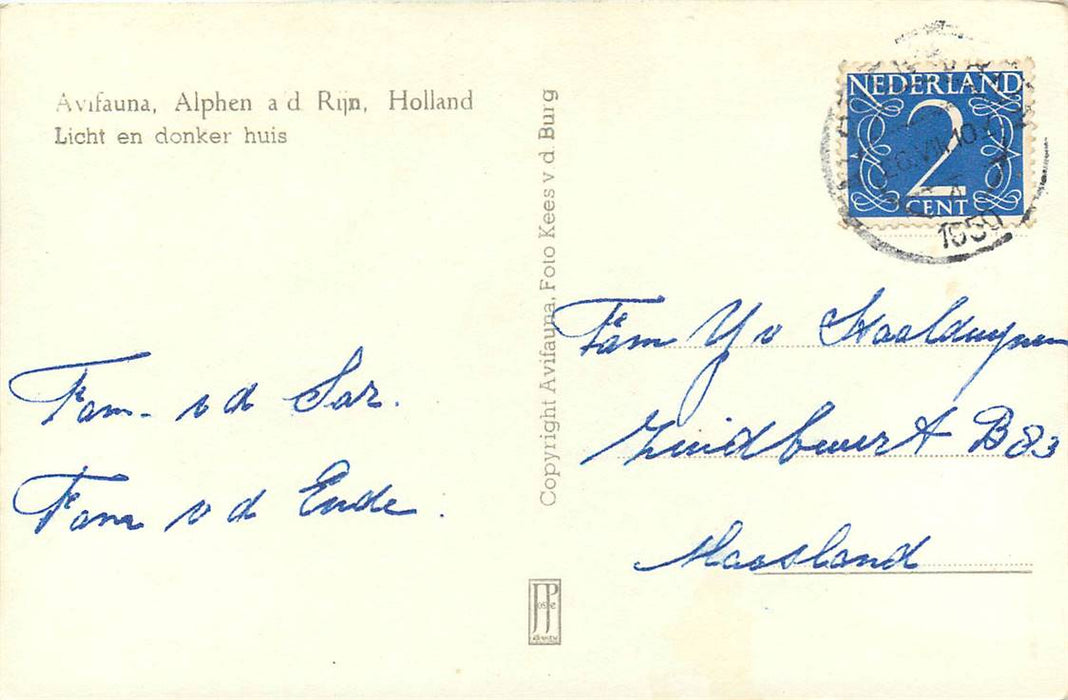 Avifauna, Alphen a d Rijn, Holland
Licht en donker huis
Fam. v d Sar.
Fam v d Ende.
Copyright Avifauna, Foto Kees v. d. Burg
JP
NEDERLAND
2
CENT
VIII.10
1950
Fam Y v Staalduynen
Zuidbuurt B83
Maasland